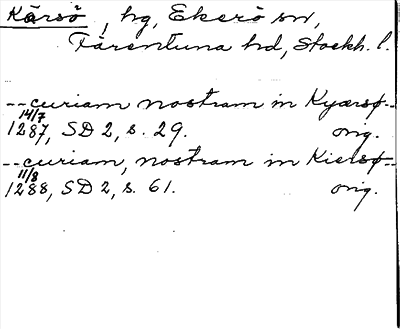 Kärsö, hg, Ekerö sn,
Färentuna hd, Stockh. l.
--curiam nostram in Kyærsø--
14/7
1287, SD 2, s. 29. orig.
--curiam, nostram in Kielsø--
11/8
1288, SD 2, s. 61. orig.